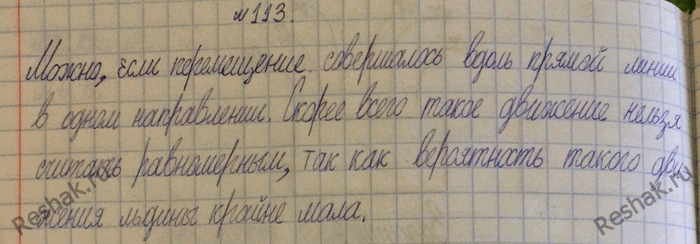 №113.
Можно, если перемещение совершалось вдоль прямой линии
в одном направлении. Скорее всего такое движение нельзя
считать равномерным, так как вероятность такого дви
жения льдины крайне мала.
Reshak.ru
Reshak.ru